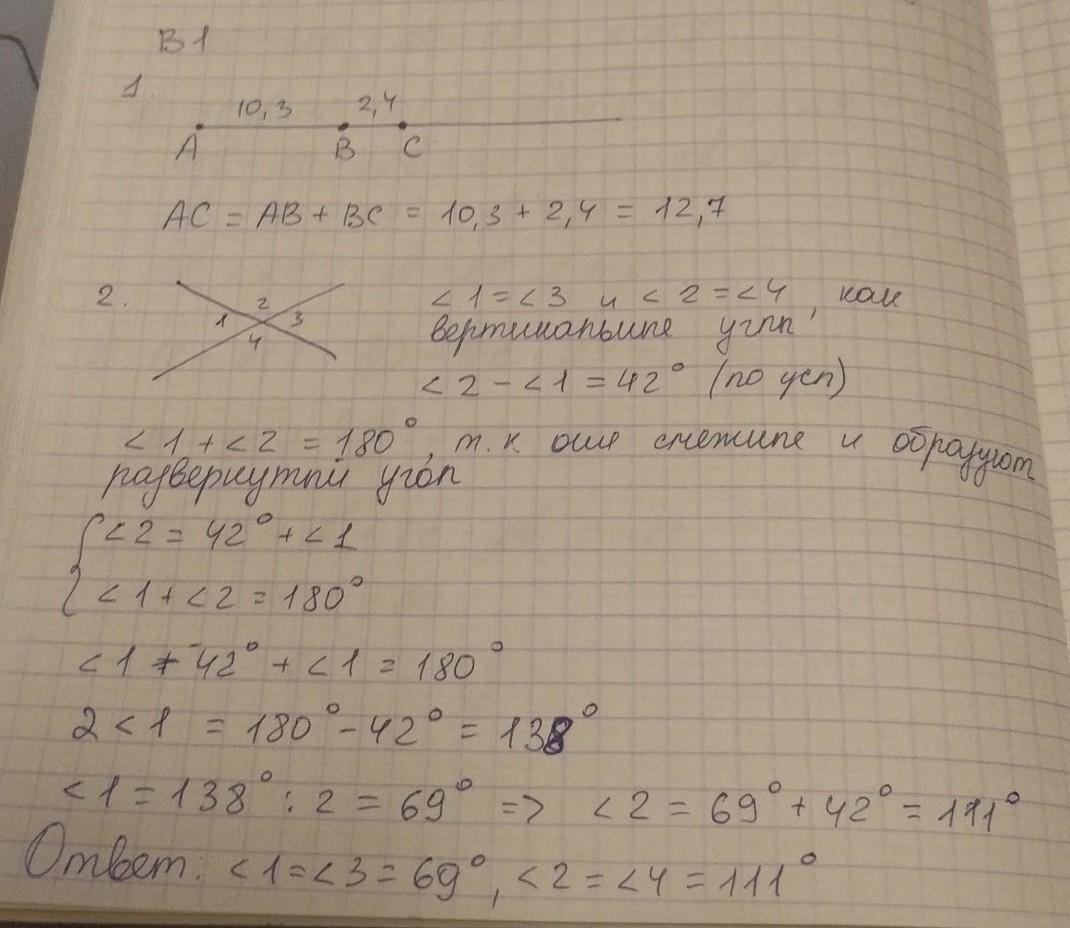 В1
1.
10,3 2,4
A B C
AC = AB + BC = 10,3 + 2,4 = 12,7
2.
1 2 3 4
<1 = <3 и <2 = <4, как
вертикальные углы
<2 - <1 = 42° (по усл)
<1 + <2 = 180°, т.к они смежные и образуют
развернутый угол
{ <2 = 42° + <1
<1 + <2 = 180°
<1 + 42° + <1 = 180°
2<1 = 180° - 42° = 138°
<1 = 138° : 2 = 69° => <2 = 69° + 42° = 111°
Ответ: <1 = <3 = 69°, <2 = <4 = 111°